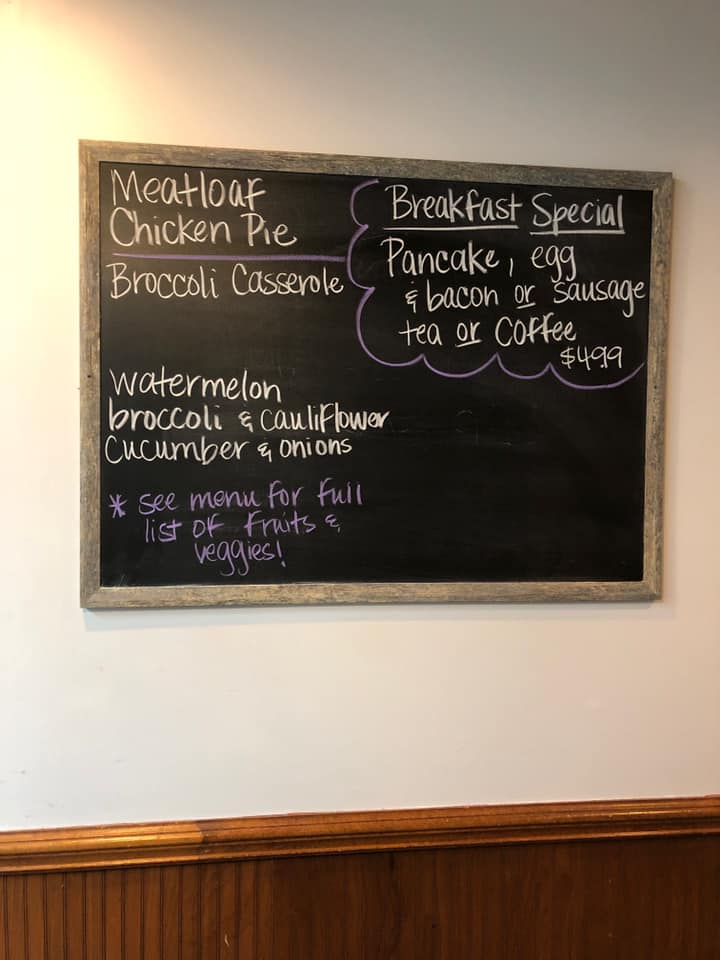 Meatloaf
Chicken Pie
Broccoli Casserole
watermelon
broccoli & cauliflower
cucumber & onions
* see menu for full
list of fruits &
veggies!
Breakfast Special
Pancake, egg
& bacon or sausage
tea or coffee
$4.99